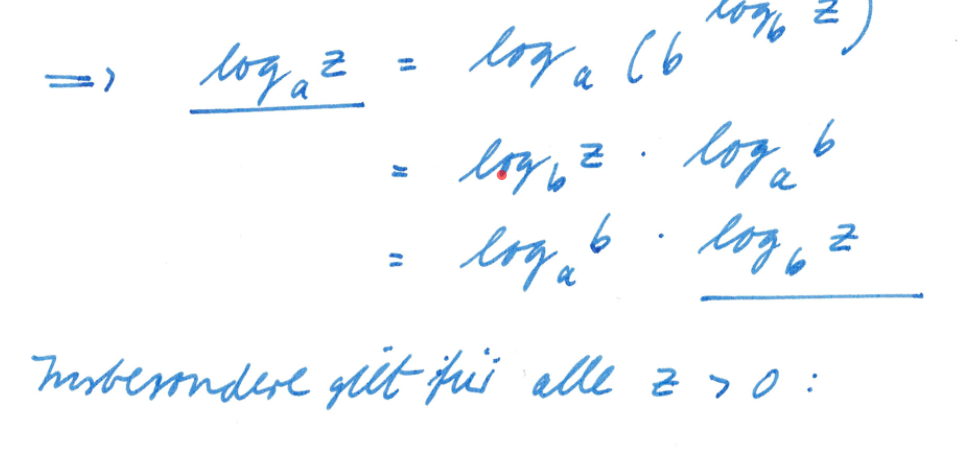 ⟹ log_a z = log_a (b^{log_b z})
= log_b z · log_a b
= log_a b · log_b z
Insbesondere gilt für alle z > 0 :